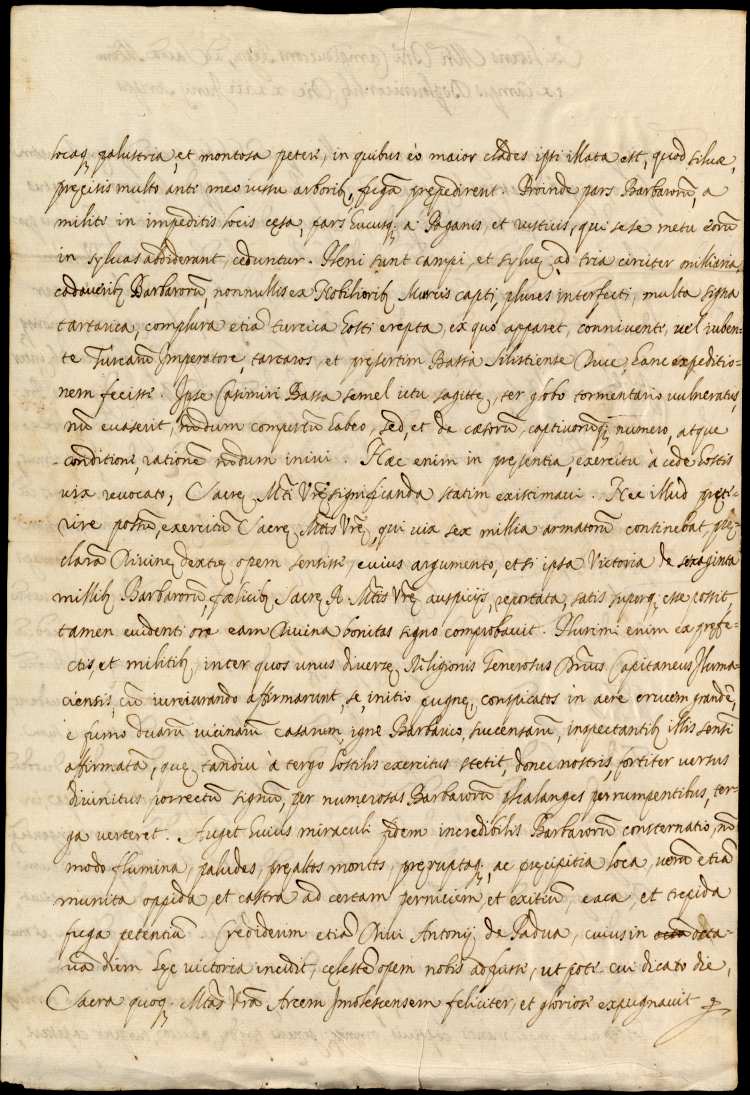 locaq₃ palustria, et montosa petere, in quibus eò maior clades ipsi illata est, quod siluæ,
pręcisis multo ante meo iussu arborib₃, fugã prępedirent. Proinde pars Barbarorũ, a
milite in impeditis locis cęsa, pars hucusq₃ à Paganis, et rusticis, qui sese metu eorũ
in syluas abdiderant, cęduntur. Pleni sunt campi, et syluę ad tria circiter milliaria,
cadauerib₃ Barbarorũ, nonnulli ex Nobiliorib₃ Murcis capti, plures interfecti, multa signa
tartarica, complura etiã turcica hosti erepta, ex quo apparet, conniuente, uel iuben=
te Turcarũ Imperatore, tartaros, et pręsertim Bassa Silistriense Duce, hanc expeditio=
nem fecisse. Ipse Casimiri Bassa semel ictu sagittę, ter globo tormentario vulneratus,
nũ euaserit, nõdum compertũ habeo, sed, et de cæsorũ, captiuorumq₃ numero, atque
conditione, rationẽ nõdum iniui. Hæc enim in pręsentia, exercitu à cęde hostis
uix reuocato, Sacrę Mti Vrę significanda statim existimaui. Nec illud pręte=
rire possũ, exercitũ Sacrę Mtis Vrę, qui uix sex millia armatorũ continebat, prę
clarã Diuinę dextrę opem sensisse, cuius argumento, etsi ipsa Victoria de sexaginta
millib₃ Barbarorũ, fœlicib₃ Sacrę R. Mtis Vrę auspicijs, reportata, satis superq₃ esse possit,
tamen euidentiore eam Diuina bonitas signo comprobauit. Plurimi enim ex pręfe=
ctis, et militib₃, inter quos unus diuersę Religionis Generosus Dñus Capitaneus Huma=
ciensis, cũ iureiurando affirmarunt, se initio pugnę, conspicatos in aere crucem grandẽ,
è fumo duarũ uicinarũ casarum, igne Barbarico, succensarũ, inspectantib₃ illis sensi
affirmatã, quę tandiu à tergo hostilis exercitus stetit, donec nostris, fortiter versus
diuinitus porrectũ signũ, per numerosas Barbarorũ phalanges perrumpentibus, ter=
ga verteret. Auget huius miraculi fidem incredibilis Barbarorũ consternatio, nõ
modo flumina, paludes, pręaltos montes, pręruptaq₃, ac pręcipitia loca, uerũ etiã
munita oppida, et castra ad certam perniciem et exitiũ, cæca, et trepida
fuga petentiũ. Crediderim etiã Diui Antonij de Padua, cuius in octa=
uã diem hęc victoria incidit, cęlestẽ opem nobis adfuisse, ut pote cui dicato die,
Sacra quoq₃ Mtas Vrã Arcem Smolescensem feliciter, et gloriose expugnauit